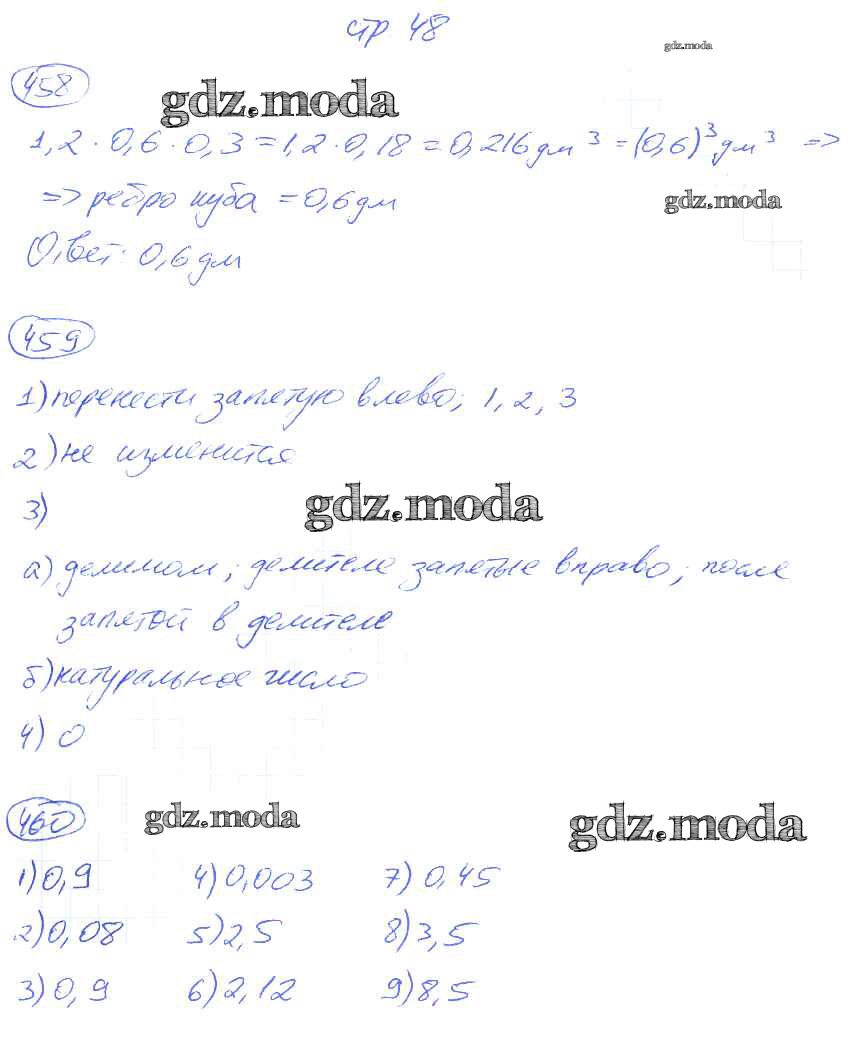 стр 48
gdz.moda
458
gdz.moda
1,2 · 0,6 · 0,3 = 1,2 · 0,18 = 0,216 дм³ = (0,6)³ дм³ =>
=> ребро куба = 0,6 дм
gdz.moda
Ответ: 0,6 дм
459
1) перенести запятую влево; 1, 2, 3
2) не изменится
gdz.moda
3)
а) делимом; делителе запятые вправо; после
запятой в делителе
б) натуральное число
4) 0
460
gdz.moda
gdz.moda
1) 0,9 4) 0,003 7) 0,45
2) 0,08 5) 2,5 8) 3,5
3) 0,9 6) 2,12 9) 8,5